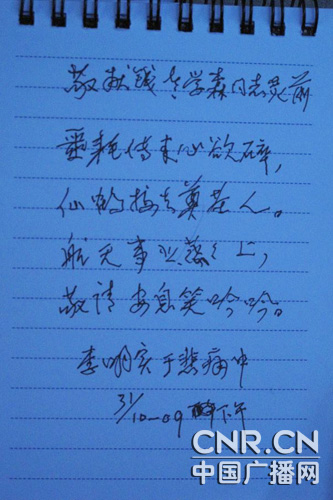 敬献钱老学森同志灵前
噩耗传来心欲碎,
仙鹤接去莫差人。
航天事业蒸蒸上,
敬请安息笑吟吟。
李明实于悲痛中
31/10-09 下午
CNR.CN
中国广播网